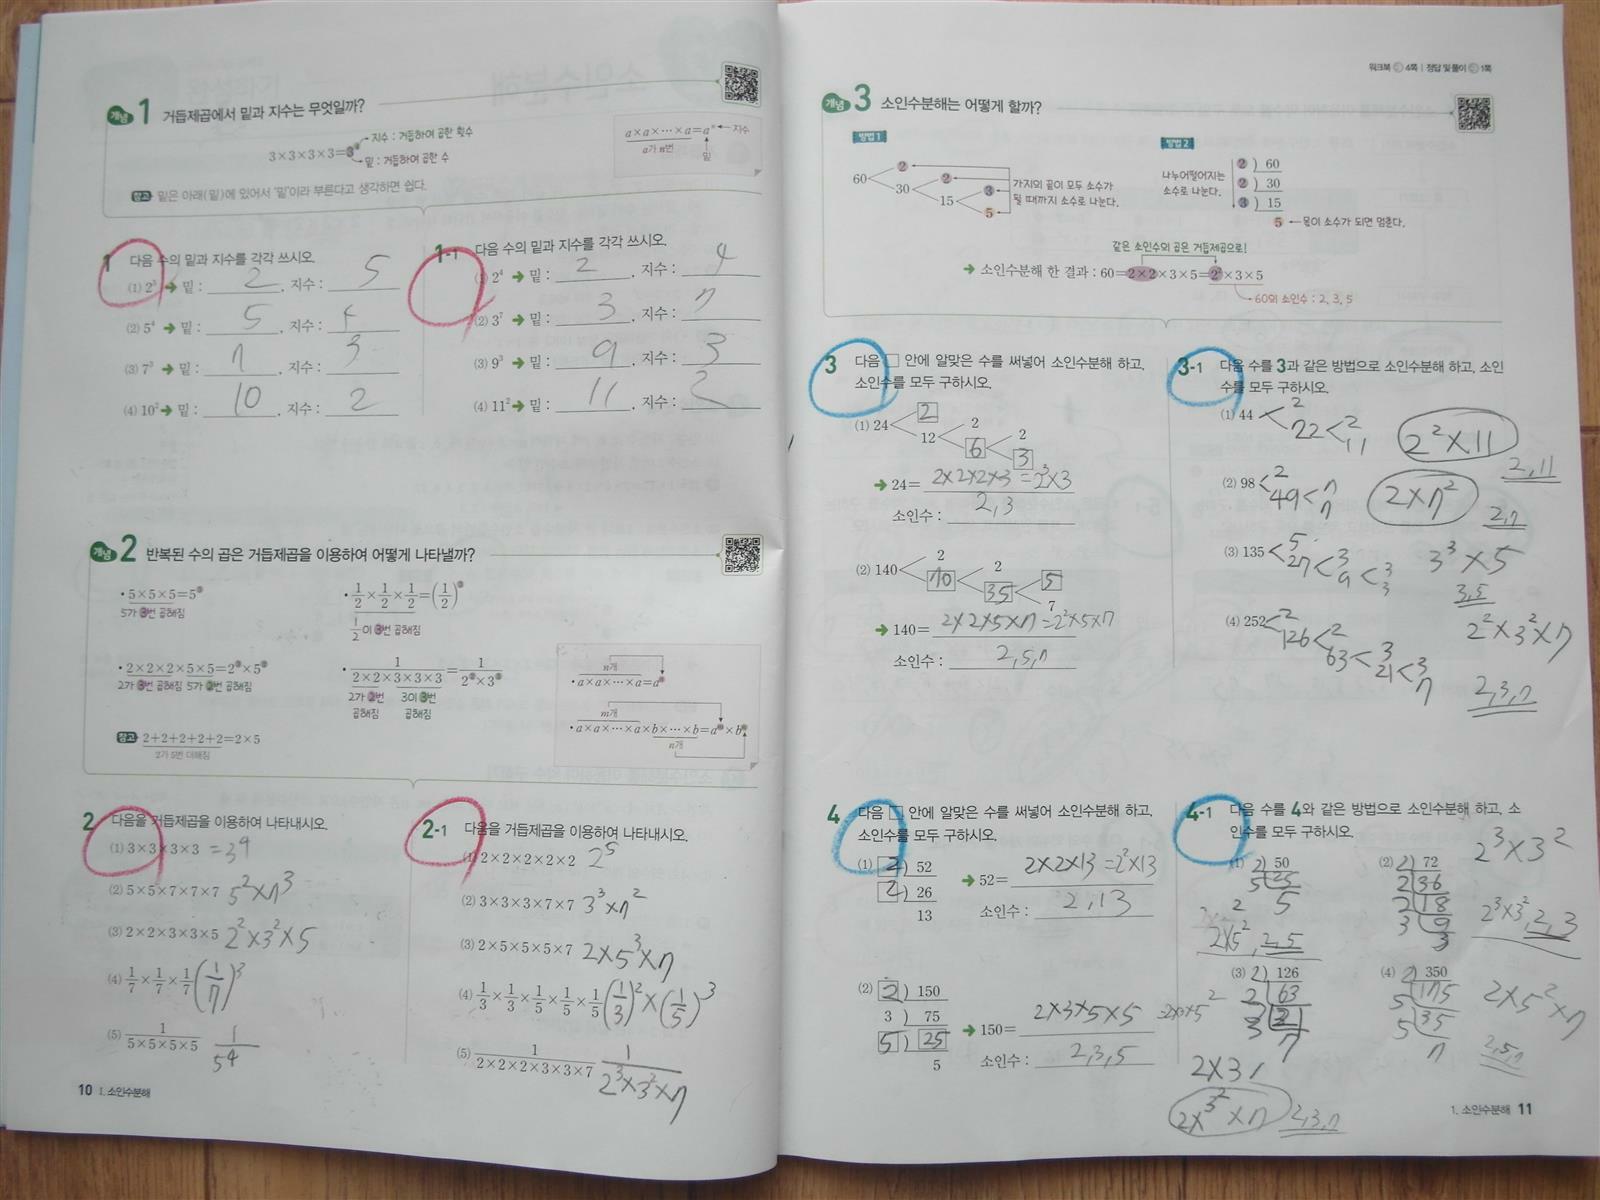 개념 1 거듭제곱에서 밑과 지수는 무엇일까?
지수 : 거듭하여 곱한 횟수
3×3×3×3=3⁴
밑 : 거듭하여 곱한 수
a×a×⋯×a=aⁿ ← 지수
a가 n번
밑
참고 밑은 아래(밑)에 있어서 '밑'이라 부른다고 생각하면 쉽다.
1 다음 수의 밑과 지수를 각각 쓰시오.
(1) 2⁵ ➔ 밑 : 2 , 지수 : 5
(2) 5⁴ ➔ 밑 : 5 , 지수 : 4
(3) 7³ ➔ 밑 : 7 , 지수 : 3
(4) 10² ➔ 밑 : 10 , 지수 : 2
1-1 다음 수의 밑과 지수를 각각 쓰시오.
(1) 2⁴ ➔ 밑 : 2 , 지수 : 4
(2) 3⁷ ➔ 밑 : 3 , 지수 : 7
(3) 9³ ➔ 밑 : 9 , 지수 : 3
(4) 11² ➔ 밑 : 11 , 지수 : 2
개념 2 반복된 수의 곱은 거듭제곱을 이용하여 어떻게 나타낼까?
• 5×5×5=5³
5가 3번 곱해짐
• 1/2×1/2×1/2=(1/2)³
1/2이 3번 곱해짐
• 2×2×2×5×5=2³×5²
2가 3번 곱해짐 5가 2번 곱해짐
• 1/(2×2×3×3×3)=1/(2²×3³)
2가 2번 곱해짐 3이 3번 곱해짐
참고 2+2+2+2+2=2×5
2가 5번 더해짐
n개
• a×a×⋯×a=aⁿ
m개
• a×a×⋯×a×b×⋯×b=aᵐ×bⁿ
n개
2 다음을 거듭제곱을 이용하여 나타내시오.
(1) 3×3×3×3 =3⁴
(2) 5×5×7×7×7 5²×7³
(3) 2×2×3×3×5 2²×3²×5
(4) 1/7×1/7×1/7 (1/7)³
(5) 1/(5×5×5×5) 1/5⁴
2-1 다음을 거듭제곱을 이용하여 나타내시오.
(1) 2×2×2×2×2 2⁵
(2) 3×3×3×7×7 3³×7²
(3) 2×5×5×5×7 2×5³×7
(4) 1/3×1/3×1/5×1/5×1/5 (1/3)²×(1/5)³
(5) 1/(2×2×2×3×3×7) 1/(2³×3²×7)
10 I. 소인수분해
워크북 4쪽 | 정답 및 풀이 1쪽
개념 3 소인수분해는 어떻게 할까?
방법 1
60 2
30 2
15 3
5
가지의 끝이 모두 소수가
될 때까지 소수로 나눈다.
방법 2
나누어떨어지는
소수로 나눈다.
2 ) 60
2 ) 30
3 ) 15
5 ← 몫이 소수가 되면 멈춘다.
같은 소인수의 곱은 거듭제곱으로!
➔ 소인수분해 한 결과 : 60=2×2×3×5=2²×3×5
60의 소인수 : 2, 3, 5
3 다음 □ 안에 알맞은 수를 써넣어 소인수분해 하고,
소인수를 모두 구하시오.
(1) 24 2
12 2
6 2
3
➔ 24= 2×2×2×3=2³×3
소인수 : 2,3
(2) 140 2
70 2
35 5
7
➔ 140= 2×2×5×7=2²×5×7
소인수 : 2,5,7
3-1 다음 수를 3과 같은 방법으로 소인수분해 하고, 소인
수를 모두 구하시오.
(1) 44 2
22 2
11
2²×11
2,11
(2) 98 2
49 7
7
2×7²
2,7
(3) 135 5
27 3
9 3
3
3³×5
3,5
(4) 252 2
126 2
63 3
21 3
7
2²×3²×7
2,3,7
4 다음 □ 안에 알맞은 수를 써넣어 소인수분해 하고,
소인수를 모두 구하시오.
(1) 2 ) 52
2 ) 26
13
➔ 52= 2×2×13=2²×13
소인수 : 2,13
(2) 2 ) 150
3 ) 75
5 ) 25
5
➔ 150= 2×3×5×5 =2×3×5²
소인수 : 2,3,5
4-1 다음 수를 4와 같은 방법으로 소인수분해 하고, 소
인수를 모두 구하시오.
(1) 2 ) 50
5 ) 25
5
2×5², 2,5
(2) 2 ) 72
2 ) 36
2 ) 18
3 ) 9
3
2³×3²
2³×3², 2,3
(3) 2 ) 126
63
7
2×3
2×3²×7
2,3,7
(4) 2 ) 350
5 ) 175
5 ) 35
7
2×5²×7
2,5,7
1. 소인수분해 11